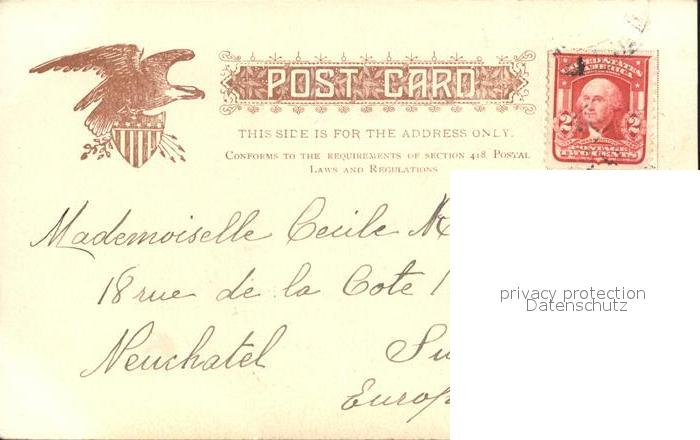 POST CARD
THIS SIDE IS FOR THE ADDRESS ONLY.
CONFORMS TO THE REQUIREMENTS OF SECTION 418 POSTAL
LAWS AND REGULATIONS
UNITED STATES
OF AMERICA
2 2
POSTAGE
TWO CENTS
Mademoiselle Cecile
18 rue de la Cote
Neuchatel Su
Europ
privacy protection
Datenschutz